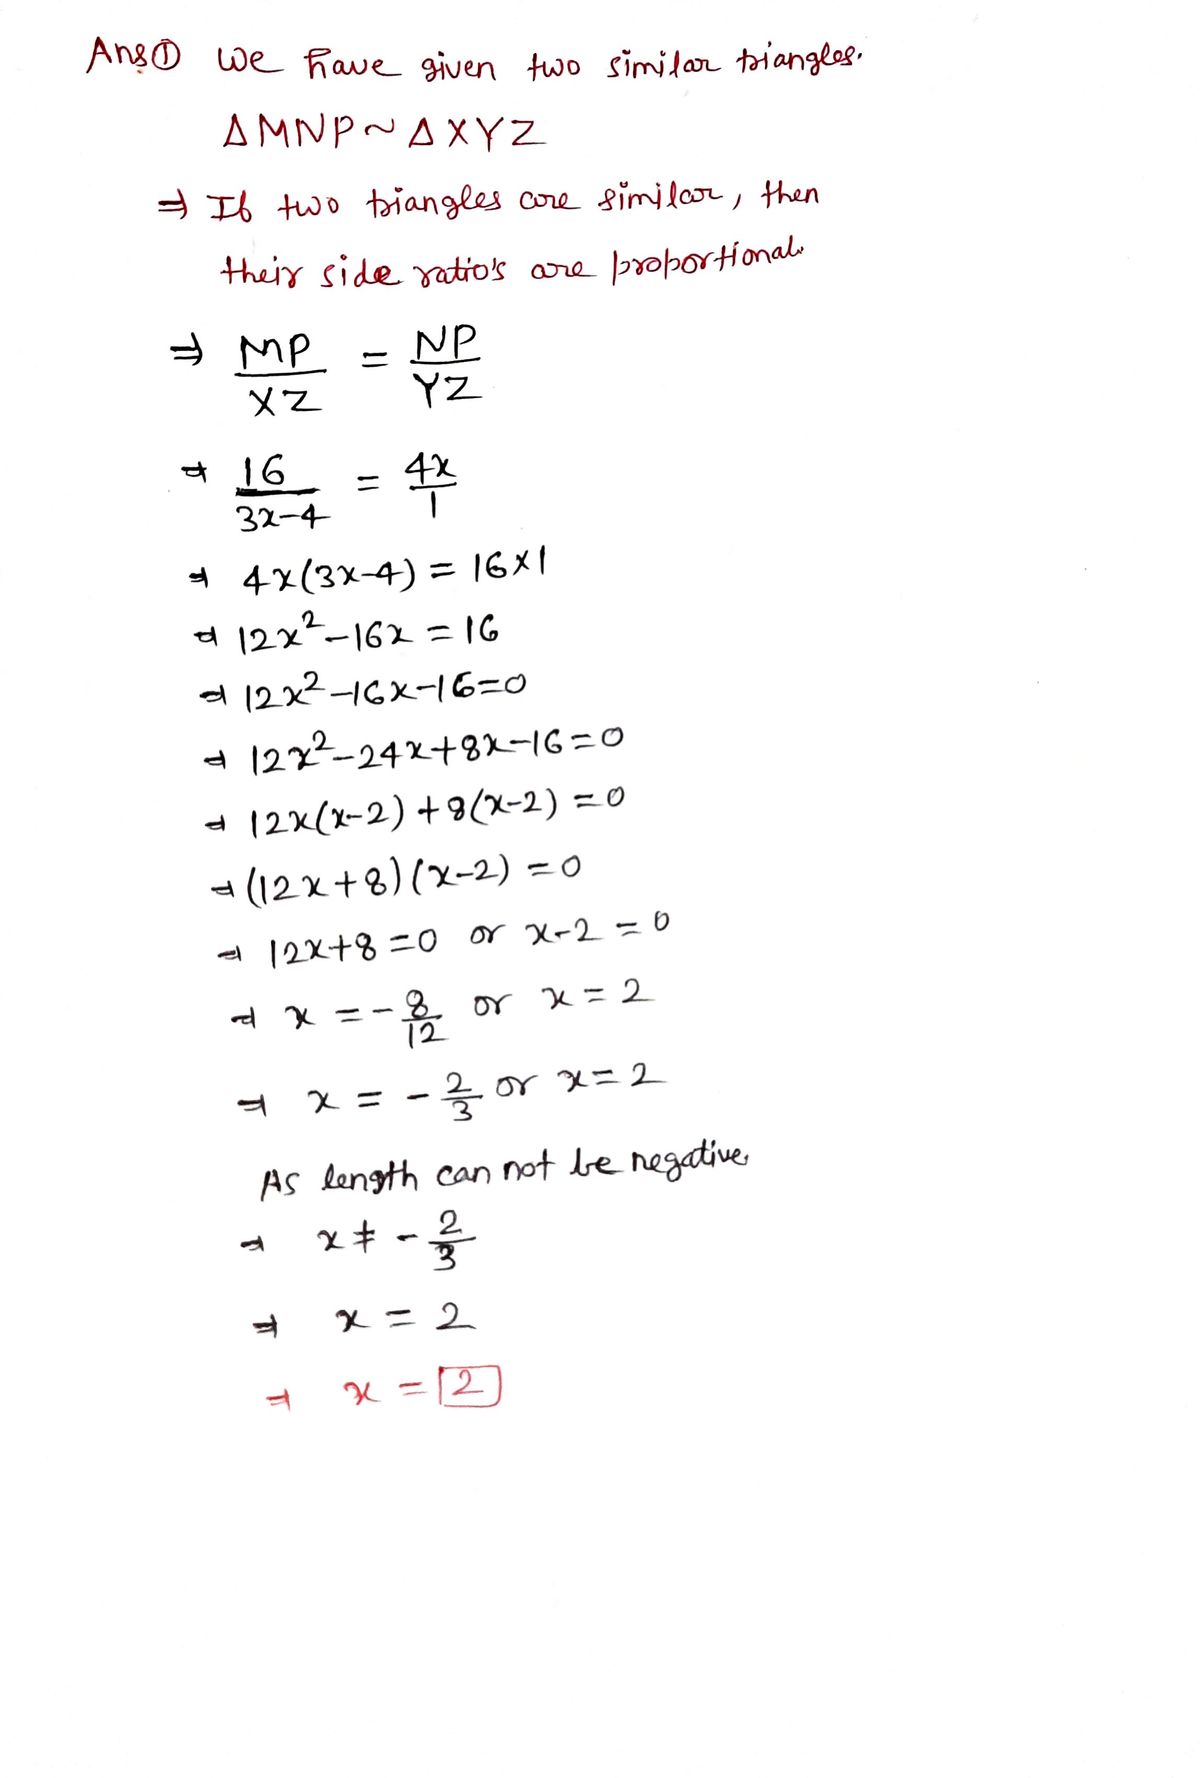 Ans① We have given two similar triangles.
△MNP ~ △XYZ
⇒ If two triangles are similar, then
their side ratio's are proportional.
⇒ MP/XZ = NP/YZ
⇒ 16/3x-4 = 4x/1
⇒ 4x(3x-4) = 16×1
⇒ 12x²-16x = 16
⇒ 12x²-16x-16=0
⇒ 12x²-24x+8x-16=0
⇒ 12x(x-2)+8(x-2)=0
⇒ (12x+8)(x-2)=0
⇒ 12x+8=0 or x-2=0
⇒ x = -8/12 or x = 2
⇒ x = -2/3 or x = 2
As length can not be negative,
⇒ x ≠ -2/3
⇒ x = 2
⇒ x = 2